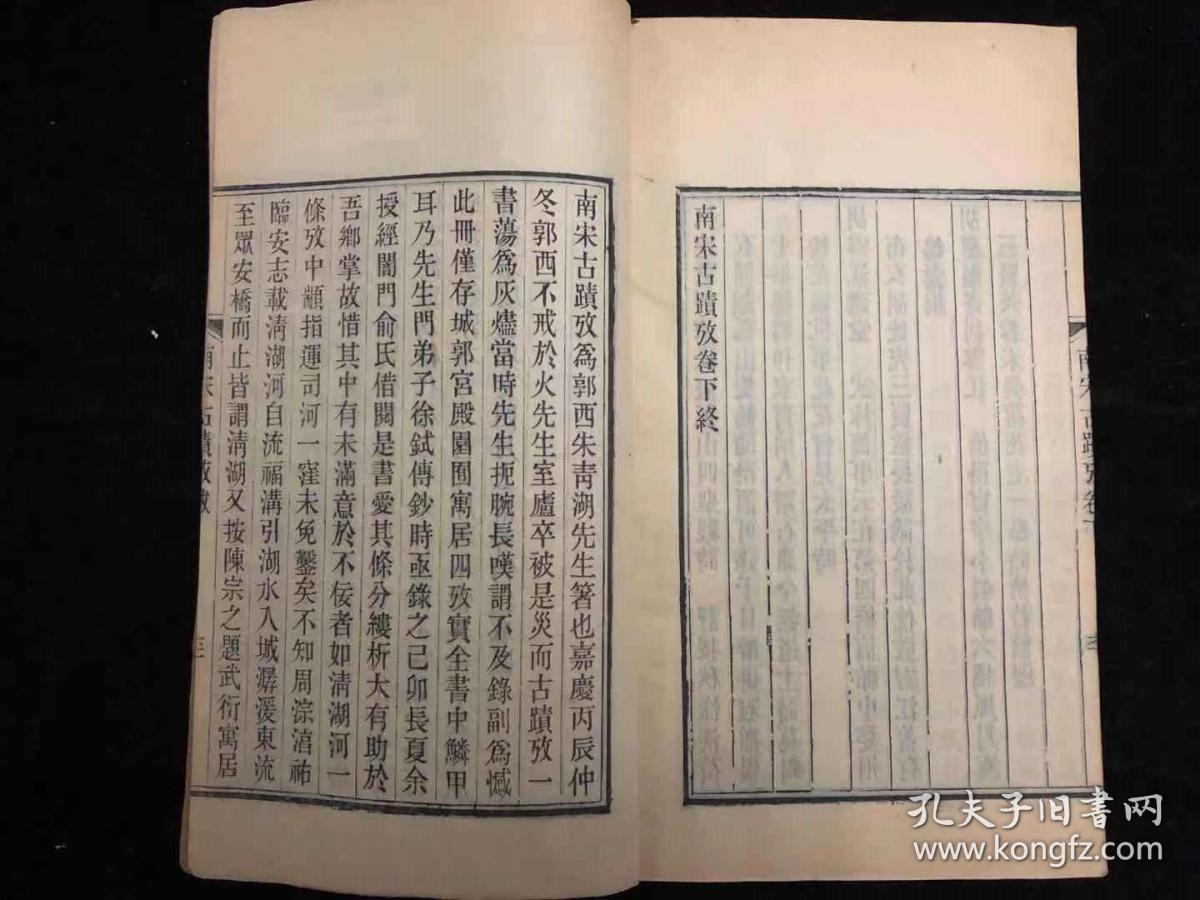 南宋古蹟攷卷下終
南宋古蹟攷卷下
南宋古蹟攷為郭西朱青湖先生箸也嘉慶丙辰仲
冬郭西不戒於火先生室廬卒被是災而古蹟攷一
書蕩為灰燼當時先生扼腕長嘆謂不及錄副為憾
此冊僅存城郭宮殿園囿寓居四攷實全書中鱗甲
耳乃先生門弟子徐鉽傳鈔時亟錄之己卯長夏余
授經閶門俞氏借閱是書愛其條分縷析大有助於
吾鄉掌故惜其中有未滿意於不佞者如清湖河一
條攷中顓指運司河一窪未免鑿矣不知周淙湻祐
臨安志載清湖河自流福溝引湖水入城潺湲東流
至眾安橋而止皆謂清湖又按陳宗之題武衍寓居
南宋古蹟攷
孔夫子旧书网
www.kongfz.com